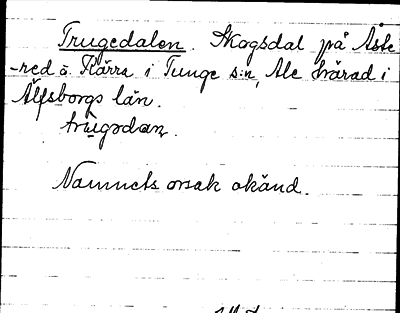 Trugedalen. Skogsdal på Åste
-red ä. Kärra i Tunge s:n, Ale härad i
Älfsborgs län.
trùgədan.
Namnets orsak okänd.